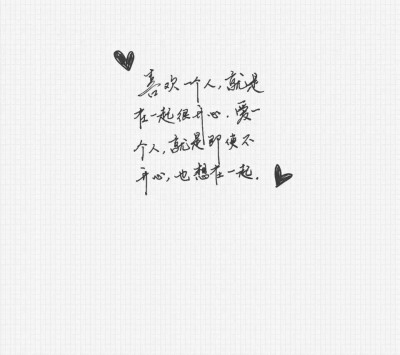 喜欢一个人，就是
在一起很开心，爱一
个人，就是即使不
开心，也想在一起。